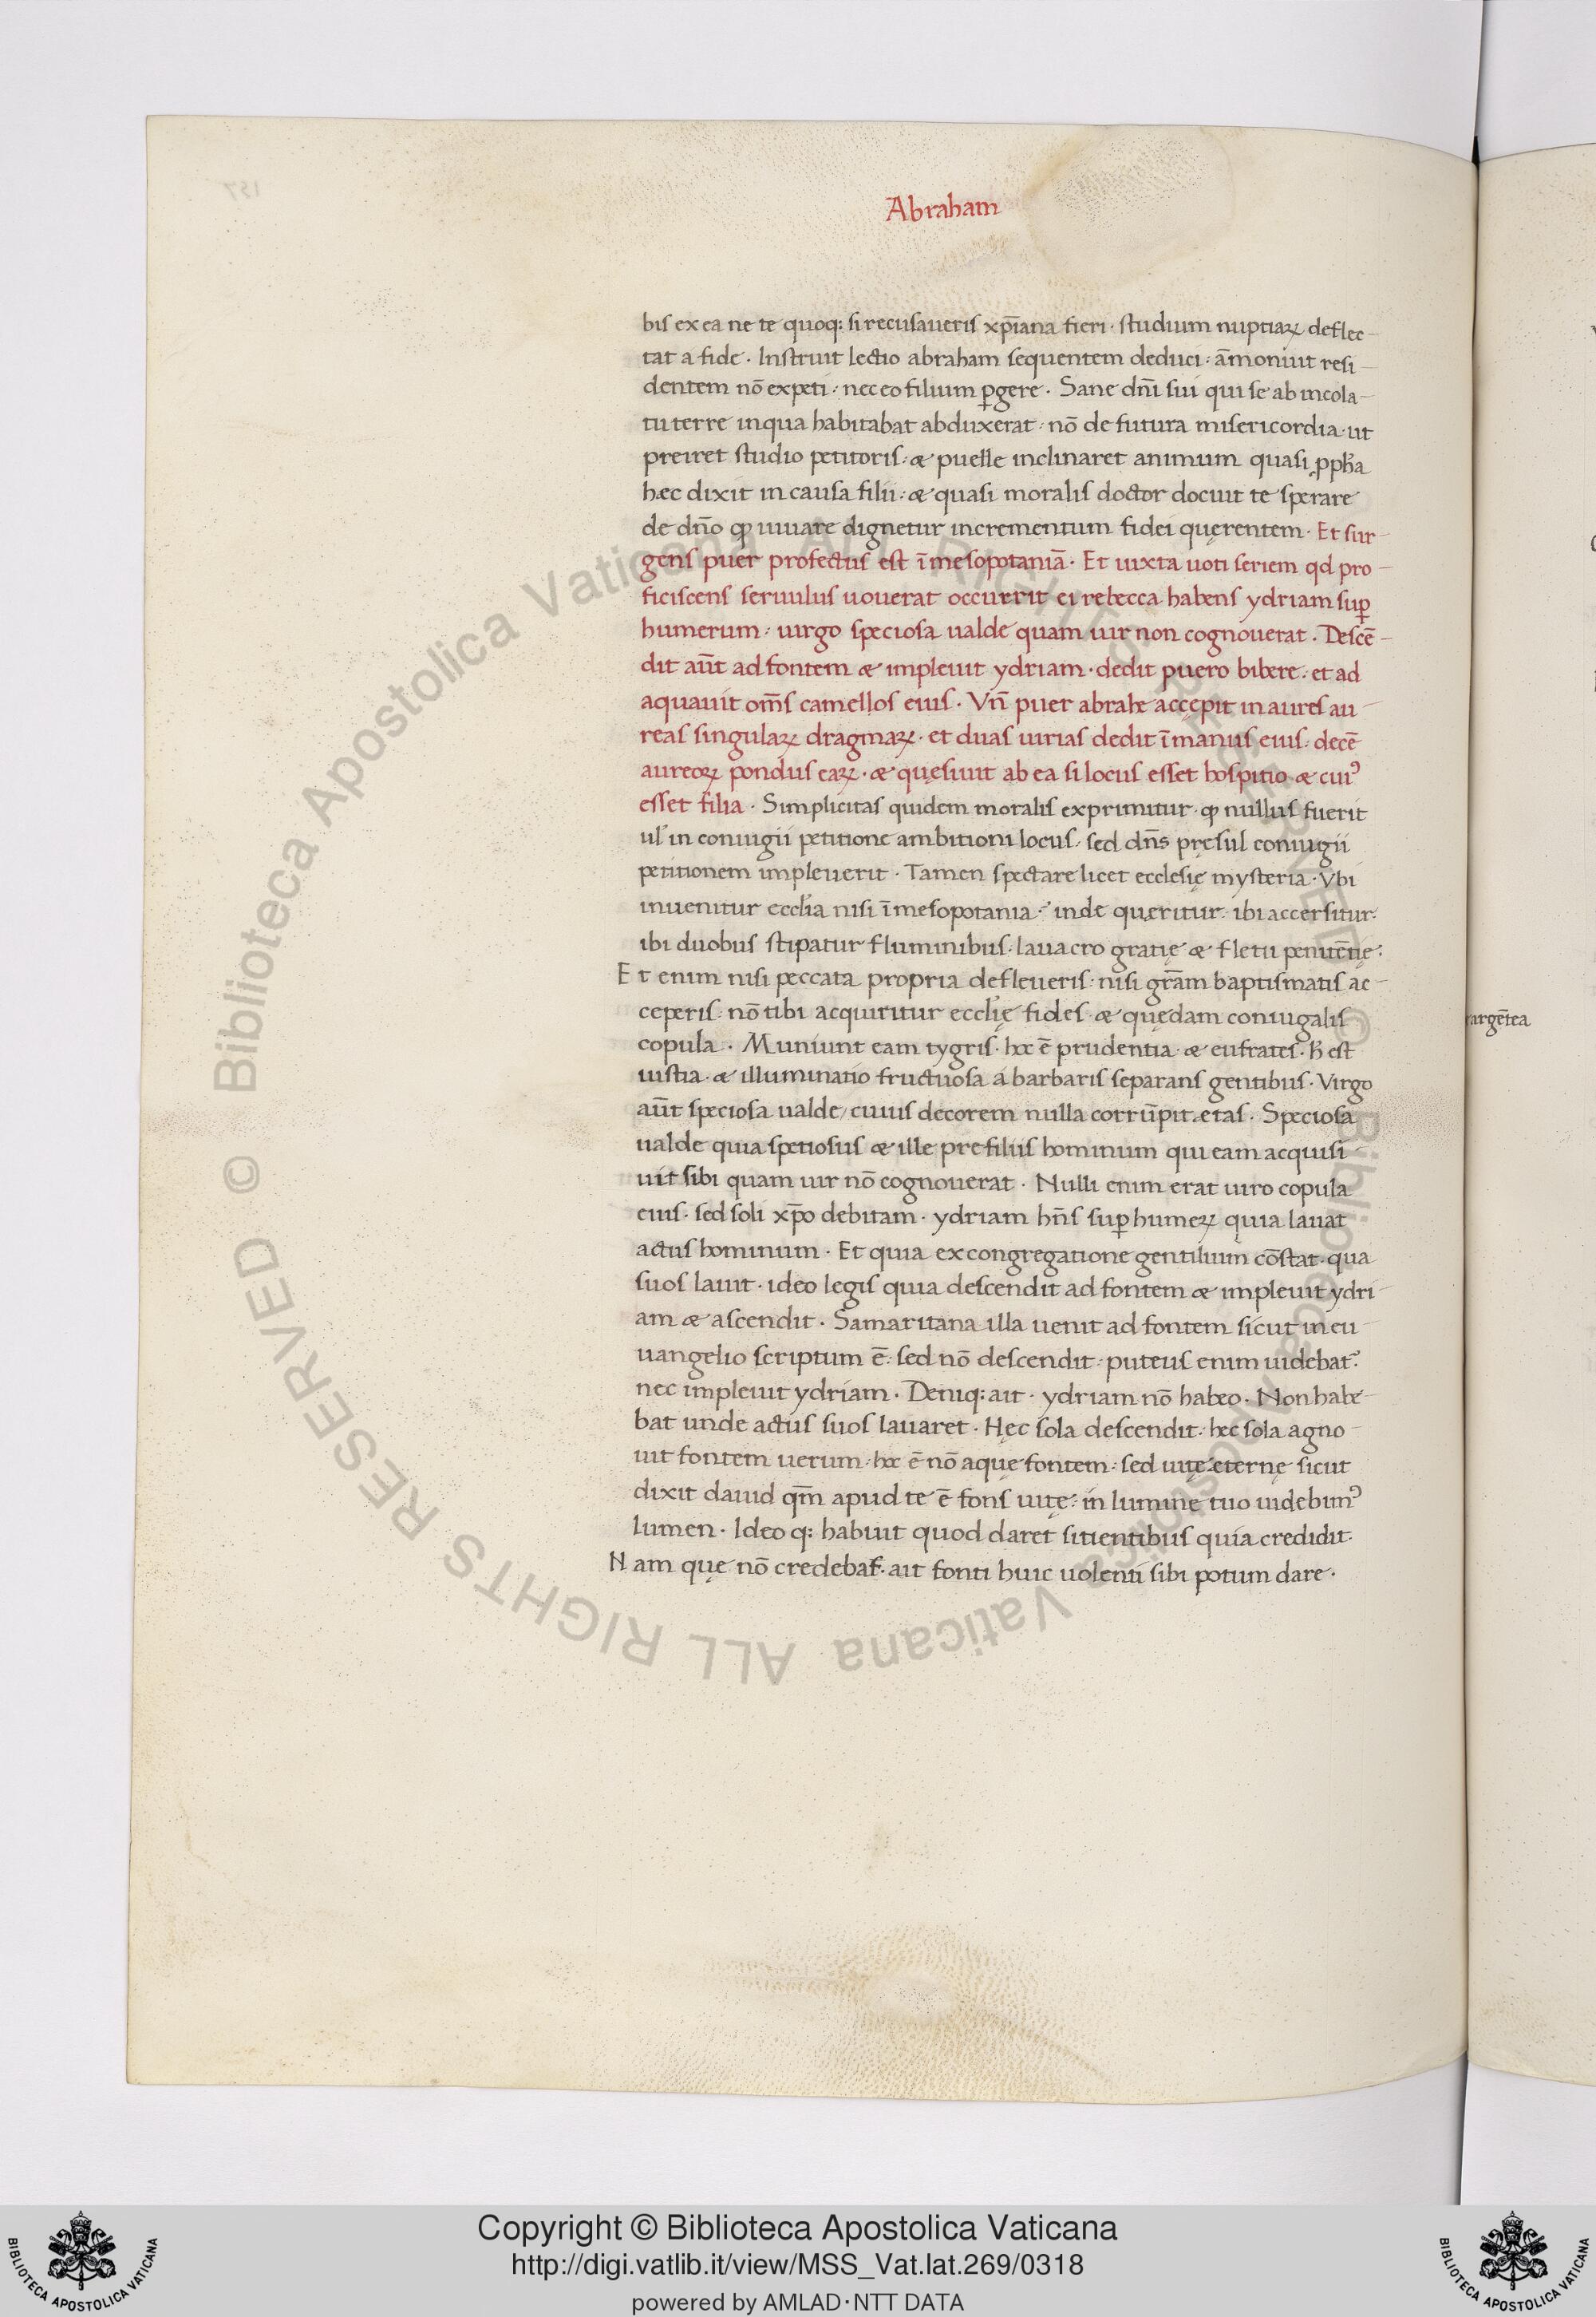 Abraham
bis ex ea ne te quoq: si recusaueris xp̄iana fieri · studium nuptiaꝝ deflec-
tat a fide · Instruit lectio abraham sequentem deduci · ām̄oniuit resi-
dentem nō expeti · nec eo filium ꝑgere · Sane dn̄i sui qui se ab incola-
tu terre in qua habitabat abduxerat · nō de futura misericordia · ut
preiret studio petitoris · & puelle inclinaret animum quasi ꝓph̄a
hæc dixit in causa filii · & quasi moralis doctor docuit te sperare
de dn̄o ꝙ iuuare dignetur incrementum fidei quęrentem · Et sur-
gens puer profectus est ī mesopotaniā · Et iuxta uoti seriem qd pro-
ficiscens seruulus uouerat occurrit ei rebecca habens ydriam suꝑ
humerum · uirgo speciosa ualde quam uir non cognouerat · Descē-
dit aūt ad fontem & impleuit ydriam · dedit puero bibere · et ad
aquauit om̄s camellos eius · Vn̄ puer abrahe accępit in aures au-
reas singulaꝝ dragmaꝝ · et duas uirias dedit ī manus eius · decē
aureoꝝ pondus eaꝝ · & quęsiuit ab ea si locus esset hospitio & cuiꝰ
esset filia · Simplicitas quidem moralis exprimitur · ꝙ nullus fuerit
ul' in coniugii petitione ambitioni locus · sed dn̄s pręsul coniugii
petitionem impleuerit · Tamen spectare licet ecclesię mysteria · Vbi
inuenitur eccl'ia nisi ī mesopotania · inde quęritur · ibi accersitur ·
ibi duobus stipatur fluminibus · lauacro gratię & fletu penitētię ·
Et enim nisi peccata propria defleueris · nisi gr̄am baptismatis ac-
ceperis · nō tibi acquiritur eccl'ię fides & quędam coniugalis
copula · Muniunt eam tygris · hoc ē prudentia · & eufrates · h̄ est
iustia · & illuminatio fructuosa a barbaris separans gentibus · Virgo
aūt speciosa ualde / cuius decorem nulla corrūpit ætas · Speciosa
ualde quia spetiosus & ille pre filiis hominum qui eam acquisi-
uit sibi quam uir nō cognouerat · Nulli enim erat uiro copula
eius · sed soli xp̄o debitam · ydriam hn̄s suꝑ humeꝝ quia lauat
actus hominum · Et quia ex congregatione gentilium cōstat · qua
suos lauit · ideo legis quia descendit ad fontem & impleuit ydri-
am & ascendit · Samaritana illa uenit ad fontem sicut in eu-
uangelio scriptum ē · sed nō descendit · puteus enim uidebat᷑ ·
nec impleuit ydriam · Deniq: ait · ydriam nō habeo · Non habe-
bat unde actus suos lauaret · Hęc sola descendit · hęc sola agno-
uit fontem uerum · hoc ē nō aquę fontem · sed uitę æternę sicut
dixit dauid qm̄ apud te ē fons uitę · in lumine tuo uidebimꝰ
lumen · Ideo q: habuit quod daret sitientibus quia credidit ·
Nam quę nō credebat · ait fonti huic uolenti sibi potum dare ·
argētea
© Biblioteca Apostolica Vaticana ALL RIGHTS RESERVED © Biblioteca Apostolica Vaticana ALL RIGHTS RESERVED
Copyright © Biblioteca Apostolica Vaticana
http://digi.vatlib.it/view/MSS_Vat.lat.269/0318
powered by AMLAD·NTT DATA
BIBLIOTECA APOSTOLICA VATICANA
BIBLIOTECA APOSTOLICA VATICANA